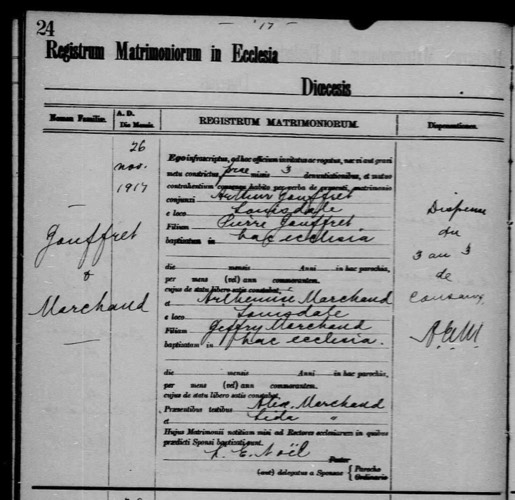 24
'17
Registrum Matrimoniorum in Ecclesia
Diœcesis
Nomen Familiæ.
A. D.
Die Mensis.
REGISTRUM MATRIMONIORUM.
Dispensationes.
26
nov.
1917
Gouffret
&
Marchand
Ego infrascriptus, ad hoc officium invitatus ac rogatus, nec vi aut gravi
metu constrictus, præmissis 3 denuntiationibus, et mutuo
contrahentium consensu habito per verba de præsenti, matrimonio
conjunxi Arthur Gouffret
e loco Louisdale
Filium Pierre Gouffret
baptizatum in hac ecclesia
die mensis Anni in hac parochia,
per mens (vel) ann commorantem.
cujus de statu libero satis constabat,
et Arthemise Marchand
e loco Louisdale
Filiam Geffry Marchand
baptizatam in hac ecclesia.
die mensis Anni in hac parochia,
per mens (vel) ann commorantem.
cujus de statu libero satis constabat,
Præsentibus testibus Alex. Marchand
et Lida "
Hujus Matrimonii notitiam misi ad Rectores ecclesiarum in quibus
prædicti Sponsi baptizati sunt.
E. Noël
Pastor
(aut) delegatus a Sponsae { Parocho
Ordinario
Dispense
du
3 au 3
de
consang.